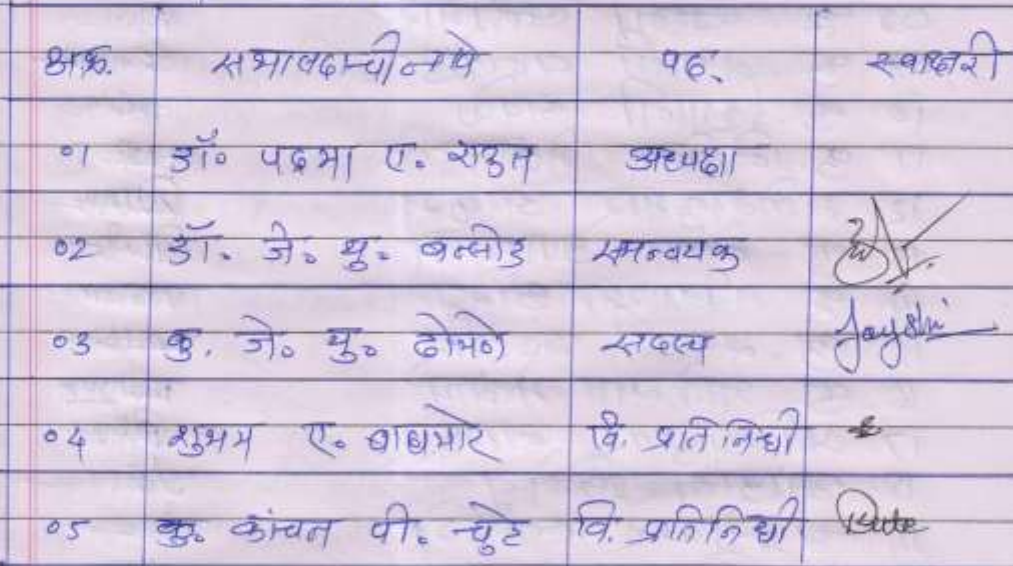 अ.क्र. सभासदाची नावे पद. स्वाक्षरी
०१ डॉ. पद्मा ए. राऊत अध्यक्षा
०२ डॉ. जे. यु. बन्सोड समन्वयक
०३ कु. जे. यु. ढोमणे सदस्य Jayshri
०४ शुभम ए. वाघमारे वि. प्रतिनिधी
०५ कु. कांचन पी. चुटे वि. प्रतिनिधी